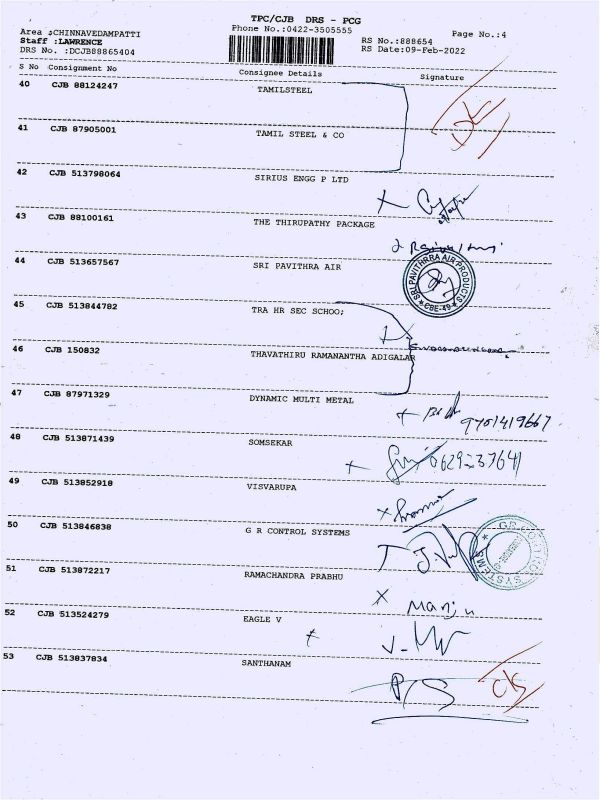 TPC/CJB DRS - PCG
Area :CHINNAVEDAMPATTI Phone No.:0422-3505555 Page No.:4
Staff :LAWRENCE RS No.:888654
DRS No. :DCJB88865404 RS Date:09-Feb-2022
S No Consignment No Consignee Details Signature
40 CJB 88124247 TAMILSTEEL
41 CJB 87905001 TAMIL STEEL & CO
42 CJB 513798064 SIRIUS ENGG P LTD
43 CJB 88100161 THE THIRUPATHY PACKAGE
44 CJB 513657567 SRI PAVITHRA AIR
SRI PAVITHRRA AIR PRODUCTS
★ CBE-49 ★
45 CJB 513844782 TRA HR SEC SCHOO;
46 CJB 150832 THAVATHIRU RAMANANTHA ADIGALAR
47 CJB 87971329 DYNAMIC MULTI METAL
48 CJB 513871439 SOMSEKAR
49 CJB 513852918 VISVARUPA
50 CJB 513846838 G R CONTROL SYSTEMS
51 CJB 513872217 RAMACHANDRA PRABHU
Manju
52 CJB 513524279 EAGLE V
53 CJB 513837834 SANTHANAM